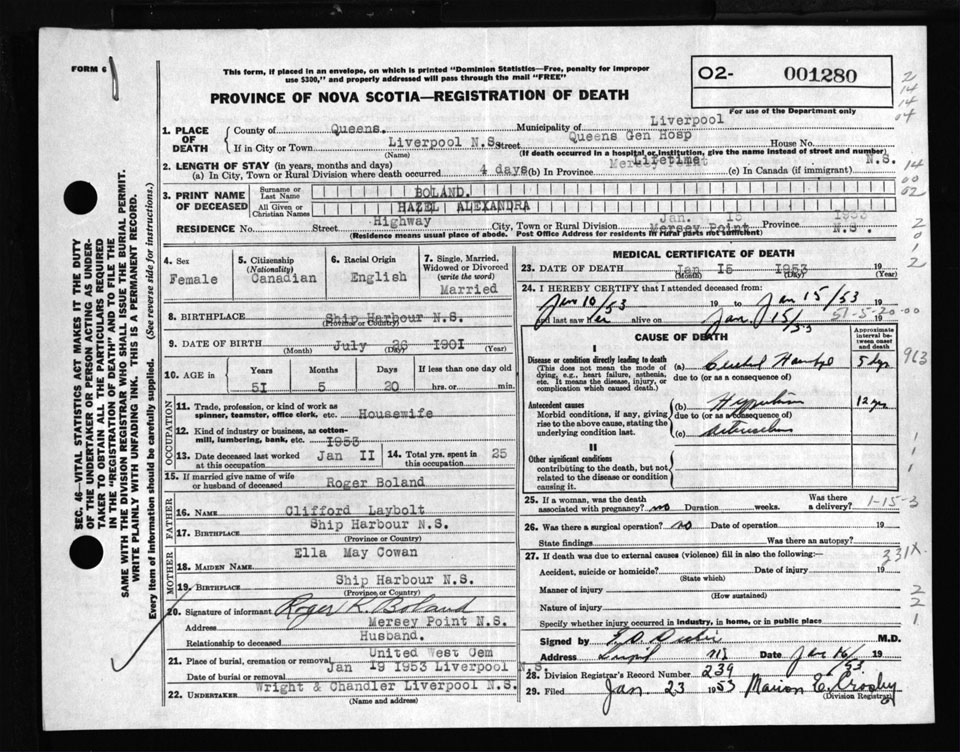 FORM 6
This form, if placed in an envelope, on which is printed "Dominion Statistics—Free, penalty for improper
use $300," and properly addressed will pass through the mail "FREE"
PROVINCE OF NOVA SCOTIA—REGISTRATION OF DEATH
O2- 001280
For use of the Department only
SEC. 46—VITAL STATISTICS ACT MAKES IT THE DUTY
OF THE UNDERTAKER OR PERSON ACTING AS UNDER-
TAKER TO OBTAIN ALL THE PARTICULARS REQUIRED
IN THE "REGISTRATION OF DEATH" AND TO FILE THE
SAME WITH THE DIVISION REGISTRAR WHO SHALL ISSUE THE BURIAL PERMIT.
WRITE PLAINLY WITH UNFADING INK. THIS IS A PERMANENT RECORD.
Every item of information should be carefully supplied. (See reverse side for instructions.)
1. PLACE OF DEATH
County of Queens. Municipality of Liverpool
If in City or Town Liverpool N.S. Street Queens Gen Hosp House No.
(Name) (If death occurred in a hospital or institution, give the name instead of street and number)
2. LENGTH OF STAY (in years, months and days)
(a) In City, Town or Rural Division where death occurred 4 days (b) In Province Lifetime (c) In Canada (if immigrant) N.S.
3. PRINT NAME OF DECEASED
Surname or Last Name BOLAND.
All Given or Christian Names HAZEL ALEXANDRA
RESIDENCE No. Street Highway City, Town or Rural Division Mersey Point Province N.S.
Jan. 15 1953
(Residence means usual place of abode. Post Office Address for residents in rural parts not sufficient)
4. Sex
Female
5. Citizenship
(Nationality)
Canadian
6. Racial Origin
English
7. Single, Married,
Widowed or Divorced
(write the word)
Married
8. BIRTHPLACE Ship Harbour N.S.
(Province or Country)
9. DATE OF BIRTH July 26 1901
(Month) (Day) (Year)
10. AGE in Years Months Days If less than one day old
51 5 20 hrs. or min.
OCCUPATION
11. Trade, profession, or kind of work as
spinner, teamster, office clerk, etc. Housewife
12. Kind of industry or business, as cotton-
mill, lumbering, bank, etc. 1953
13. Date deceased last worked
at this occupation Jan II
14. Total yrs. spent in
this occupation 25
15. If married give name of wife
or husband of deceased Roger Boland
FATHER
16. Name Clifford Laybolt
17. Birthplace Ship Harbour N.S.
(Province or Country)
MOTHER
18. Maiden Name Ella May Cowan
19. Birthplace Ship Harbour N.S.
(Province or Country)
20. Signature of informant Roger K. Boland
Address Mersey Point N.S.
Relationship to deceased Husband.
21. Place of burial, cremation or removal United West Cem
Date of burial or removal Jan 19 1953 Liverpool N.S.
22. UNDERTAKER Wright & Chandler Liverpool N.S.
(Name and address)
MEDICAL CERTIFICATE OF DEATH
23. DATE OF DEATH Jan I5 1953 19
(Month) (Day) (Year)
24. I HEREBY CERTIFY that I attended deceased from:
Jan 10/53 19 to Jan 15/53 19
and last saw her alive on Jan. 15/53
51-5-20-00
CAUSE OF DEATH
Approximate
interval be-
tween onset
and death
I
Disease or condition directly leading to death
(This does not mean the mode of
dying, e.g., heart failure, asthenia,
etc. It means the disease, injury, or
complication which caused death.)
(a) 5 dys
due to (or as a consequence of)
Antecedent causes
Morbid conditions, if any, giving
rise to the above cause, stating the
underlying condition last.
(b) 12 yrs
due to (or as a consequence of)
(c)
II
Other significant conditions
contributing to the death, but not
related to the disease or condition
causing it.
963
25. If a woman, was the death
associated with pregnancy? no Duration weeks. Was there
a delivery?
1-15-3
26. Was there a surgical operation? no Date of operation 19
State findings Was there an autopsy?
27. If death was due to external causes (violence) fill in also the following:
331X
Accident, suicide or homicide? Date of injury 19
(State which)
Manner of injury
(How sustained)
Nature of injury
Specify whether injury occurred in industry, in home, or in public place
Signed by M.D.
Address NS Date Jan 16/53 19
28. Division Registrar's Record Number 239
29. Filed Jan. 23 1953 Marion E. Crosby
(Division Registrar)